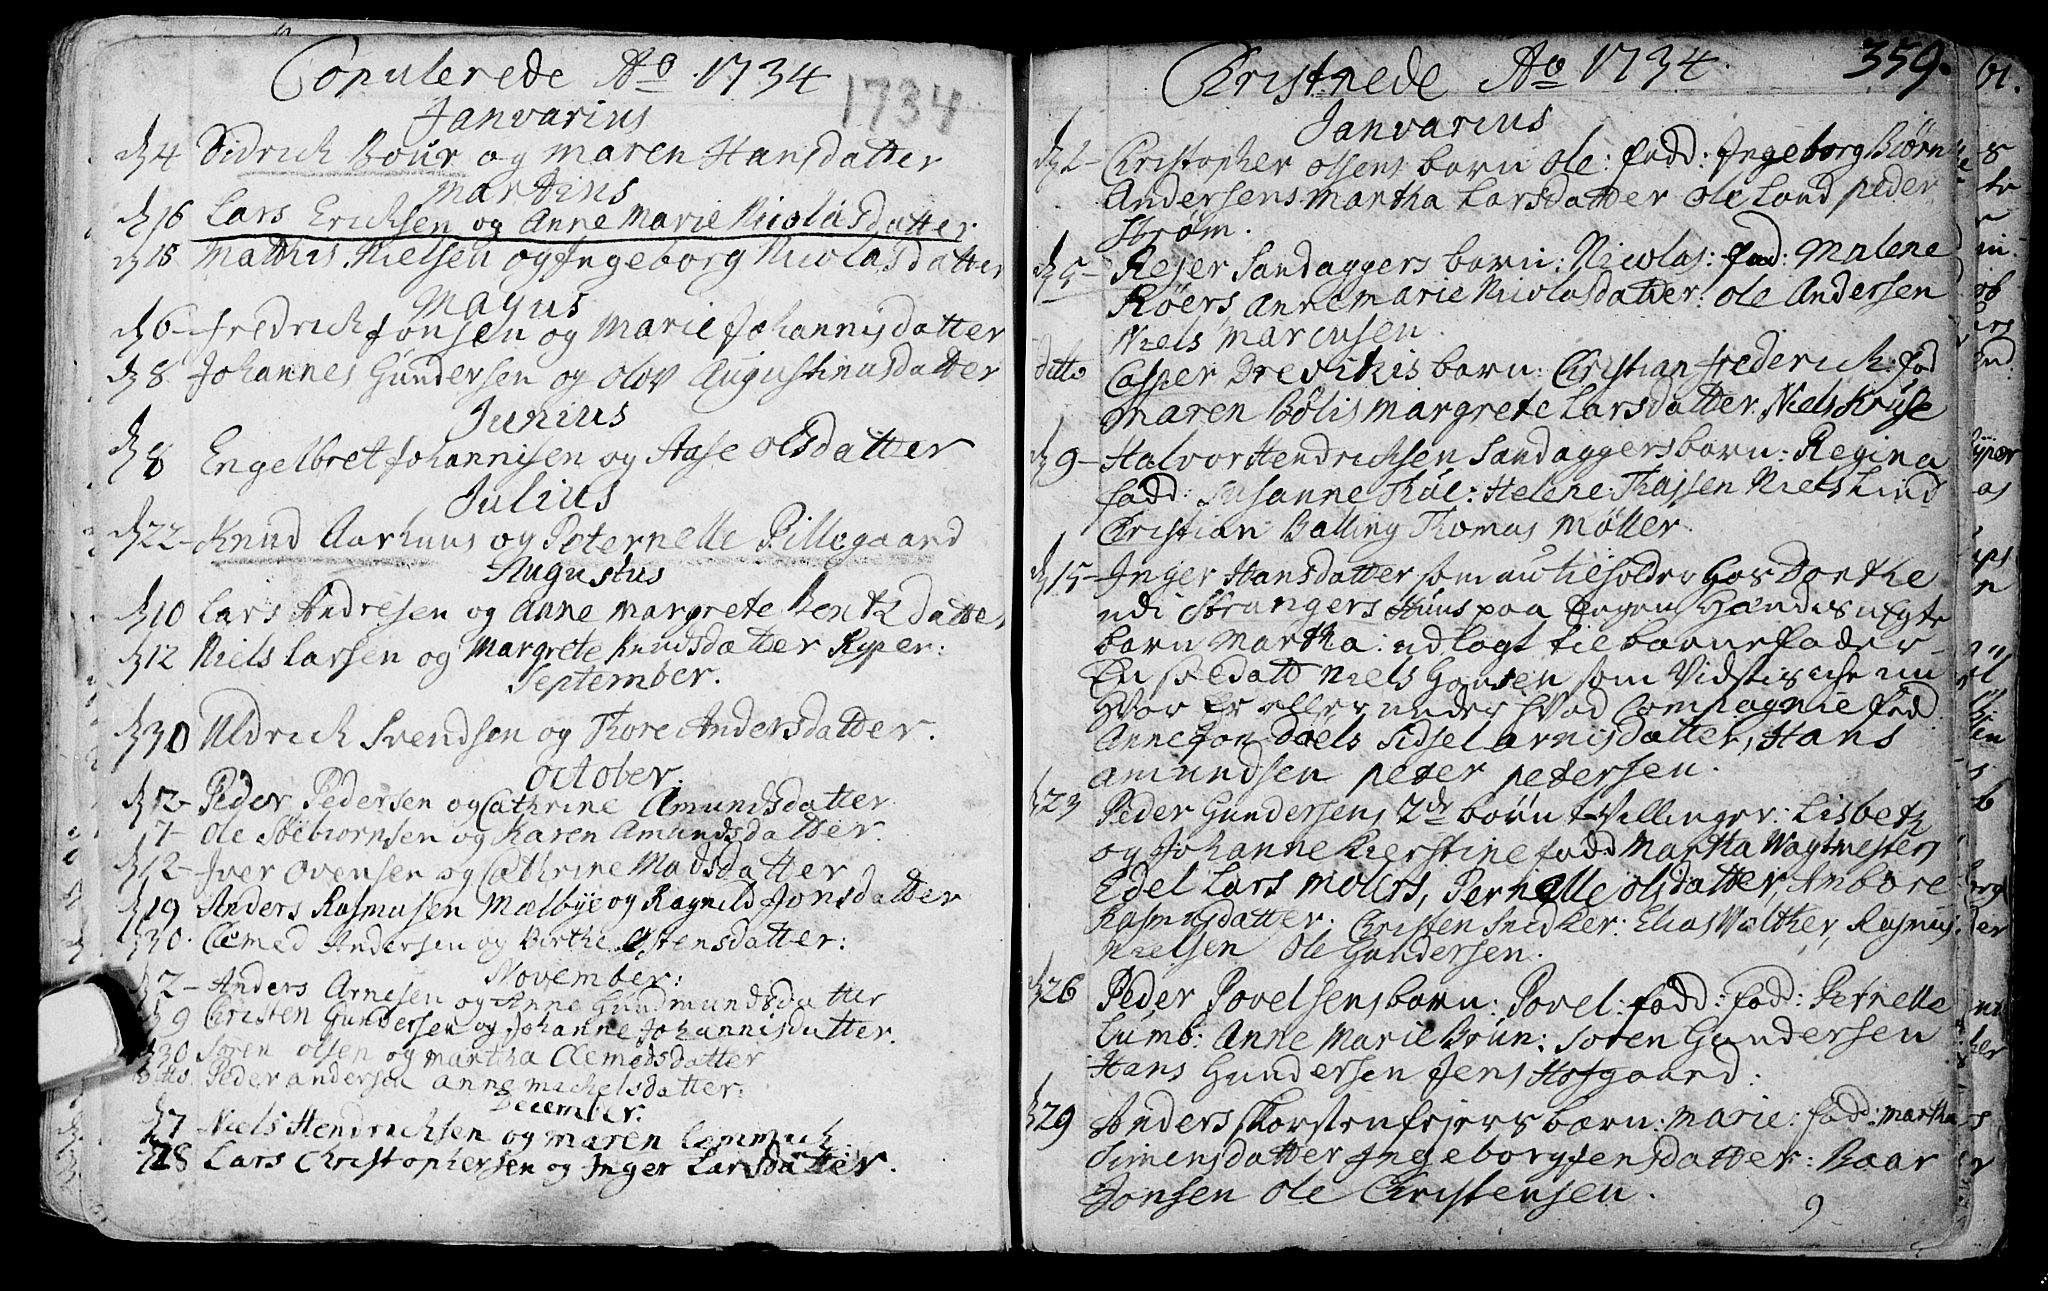 Copulerede Ao 1734
1734
Janvarius
d 4 Didrich Bour og Maren Hansdatter
Martius
d 16 Lars Ericksen og Anne Marie Nicolasdatter
d 18 Mathis Nielsen og Ingeborg Nicolasdatter
Mayus
d 6 Fredrich Jonsen og Marie Johannisdatter
d 8 Johannes Gundersen og Olov Augustinusdatter
Junius
d 8 Engelbret Johannisen og Aase Olsdatter
Julius
d 22 Knud Aarhuus og Peternelle Pillegaard
Augustus
d 10 Lars Andresen og Anne Margrete Bentzdatter
d 12 Niels Larsen og Margrete Knudsdatter Ryper:
September.
d 30 Uldrich Svendsen og Thore Andersdatter.
October.
d 12 Peder Pedersen og Cathrine Amundsdatter
17 Ole Søebiornsen og Karen Amundsdatter.
d 12 Iver Ovensen og Cathrine Madsdatter
d 19 Anders Rasmusen Mælbye og Ragnild Jonsdatter
d 30. Clemed Andersen og Birthe Estensdatter:
November:
d 2 Anders Arnesen og Anne Gundmundsdatter
d 9 Christen Gundersen og Johanne Johannisdatter.
d 30 Soren Olsen og Martha Clemedsdatter
ditto. Peder Andersen Anne Mickelsdatter:
December.
d 7 Niels Hendrichsen og Maren Lemmich
28 Lars Christophersen og Inger Larsdatter.
Christnede Ao 1734.
359.
Janvarius
d 2 Christopher Olsens barn Ole: fadd: Ingeborg Biørn
Andersens Martha Larsdatter Ole Lond Peder
Strøm.
d 5 Rejer Sandaggers barn: Nicolas: fad: Malene
Røers, Anne Marie Nicolasdatter: Ole Andersen
Niels Marcusen.
ditto Casper Drevikis barn: Christian Frederick: fad
Maren Bolis Margrete Larsdatter Niels Kruse
d 9 Halvor Hendrichsen Sandaggers barn: Regina
fadd: Susanne Thue: Helene Thassen Niels Lind
Christian Balling Thomas Møller.
d 15 Inger Hansdatter som nu tilholder hos Dorthe
udi Strangers Huus paa Engen Hændis uegte
barn Martha: udlagt til barnefader
En Soldatt Niels Hansen som Vidstis iche nu
hvor er eller under hvad Compagnie fad
Anne Jon Doels Sidsel Arnisdatter, Hans
Amundsen Peter Petersen.
d 23 Peder Gundersens 2de børn tvillinger: Lisbetz
og Johanne Kierstine fadd Martha Wagtmesters
Edel Lars Molers, Pernelle Olsdatter, Ambore
Rasmusdatter. Christen Snidker: Elias Walther, Rasmus
Nielsen Ole Gundersen.
d 26 Peder Povelsens barn: Povel: fadd: fad: Pernelle
Lumb: Anne Marie Brun: Soren Gundersen
Hans Gundersen Jens Hofgaard:
d 29 Anders Thorstenfejers barn: Marie: fad: Martha
Simensdatter Ingeborg Jensdatter: Baar
Jonsen Ole Christensen.
9